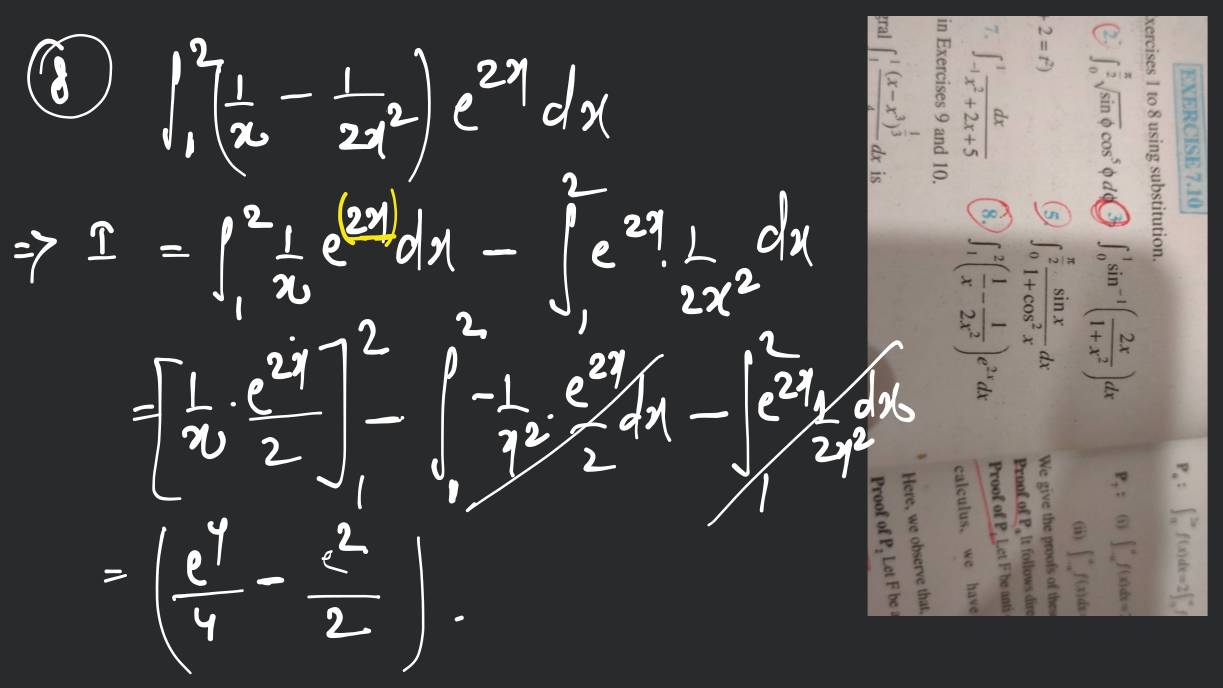 8 ∫₁² (1/x - 1/2x²) e^2x dx
=> I = ∫₁² 1/x e^(2x) dx - ∫₁² e^2x . 1/2x² dx
= [1/x . e^2x/2]₁² - ∫₁² -1/x² . e^2x/2 dx - ∫₁² e^2x 1/2x² dx
= (e^4/4 - e^2/2) .
EXERCISE 7.10
xercises 1 to 8 using substitution.
2. ∫₀^π/2 √sin ϕ cos⁵ ϕ dϕ 3. ∫₀¹ sin⁻¹ (2x/1+x²) dx
+ 2 = t²) 5. ∫₀^π/2 sin x/1+cos² x dx
7. ∫₋₁¹ dx/x²+2x+5 8. ∫₁² (1/x - 1/2x²) e^2x dx
in Exercises 9 and 10.
gral ∫ (x-x³)^1/3 dx is
P₆ : ∫₀^2a f(x)dx=2∫₀^a f
P₇ : (i) ∫₋ₐ^a f(x)dx=
(ii) ∫₋ₐ^a f(x)dx
We give the proofs of these
Proof of P₀ It follows dire
Proof of P₁ Let F be anti
calculus, we have
Here, we observe that,
Proof of P₂ Let F be a